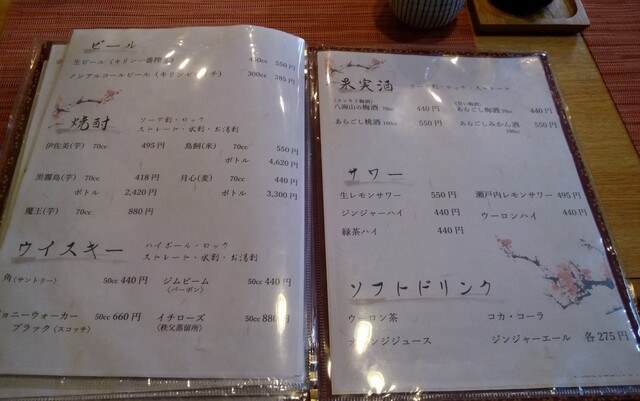 ビール
生ビール(キリン一番搾り) 450cc 550円
ノンアルコールビール(キリンゼロイチ) 300cc 385円
焼酎
ソーダ割・ロック
ストレート・水割・お湯割
伊佐美(芋) 70cc 495円 鳥飼(米) 70cc 550円
ボトル 4,620円
黒霧島(芋) 70cc 418円 月心(麦) 70cc 440円
ボトル 2,420円 ボトル 3,300円
魔王(芋) 70cc 880円
ウイスキー
ハイボール・ロック
ストレート・水割・お湯割
角(サントリー) 50cc 440円 ジムビーム 50cc 440円
(バーボン)
ョニーウォーカー 50cc 660円 イチローズ 50cc 880円
ブラック(スコッチ) (秩父蒸留所)
果実酒
ソーダ割・ロック・ストレート
(スッキリ梅酒) (甘い梅酒)
八海山の梅酒 70cc 440円 あらごし梅酒 70cc 440円
あらごし桃酒 100cc 550円 あらごしみかん酒 550円
100cc
サワー
生レモンサワー 550円 瀬戸内レモンサワー 495円
ジンジャーハイ 440円 ウーロンハイ 440円
緑茶ハイ 440円
ソフトドリンク
ウーロン茶 コカ・コーラ
ンジジュース ジンジャーエール 各275円